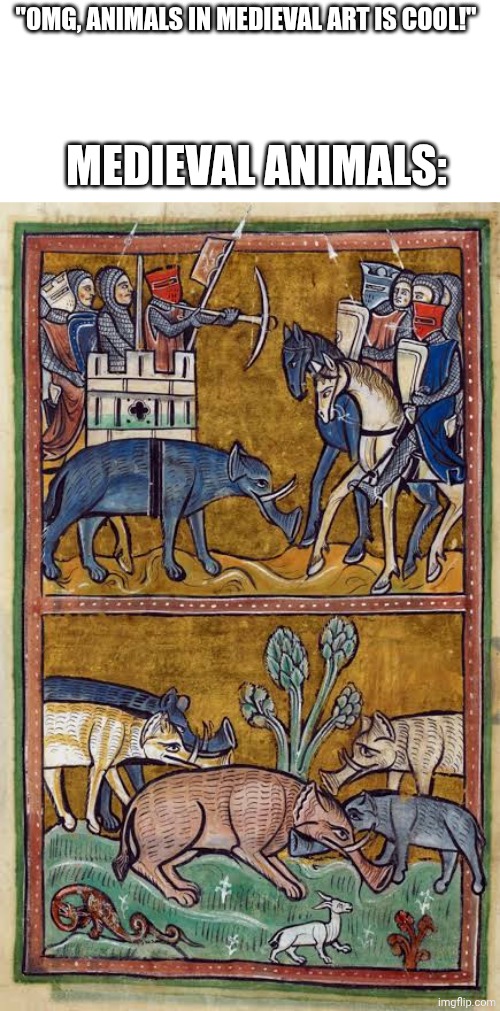 "OMG, ANIMALS IN MEDIEVAL ART IS COOL!"
MEDIEVAL ANIMALS:
imgflip.com